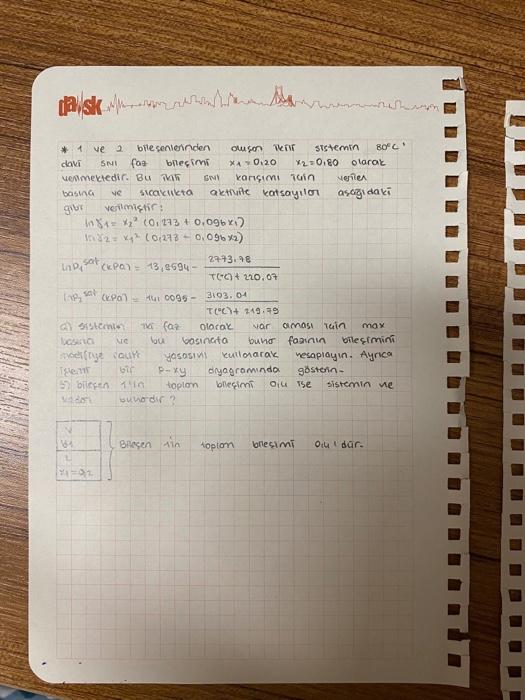 dansk
* 1 ve 2 bileşenlerinden oluşan ikili sistemin 80°C'
daki sıvı faz bileşimi x1=0,20 x2=0,80 olarak
verilmektedir. Bu ikili sıvı karışımı için verilen
basınç ve sıcaklıkta aktivite katsayıları aşağıdaki
gibi verilmiştir:
ln γ1 = x2² (0,273 + 0,096x1)
ln γ2 = x1² (0,273 - 0,096x2)
lnP1^sat (kPa) = 13,8594 - 2773,78 / T(°C) + 220,07
lnP2^sat (kPa) = 14,0095 - 3103,01 / T(°C) + 219,79
a) sistemin iki faz olarak var olması için max
basıncı ve bu basınçta buhar fazının bileşimini
modifiye rault yasasını kullanarak hesaplayın. Ayrıca
işlemi bir P-xy diyagramında gösterin.
b) bileşen 1'in toplam bileşimi 0,4 ise sistemin ne
kadarı buhardır?
V
y1
L
x1=0,2
Bileşen 1'in toplam bileşimi 0,4'dür.